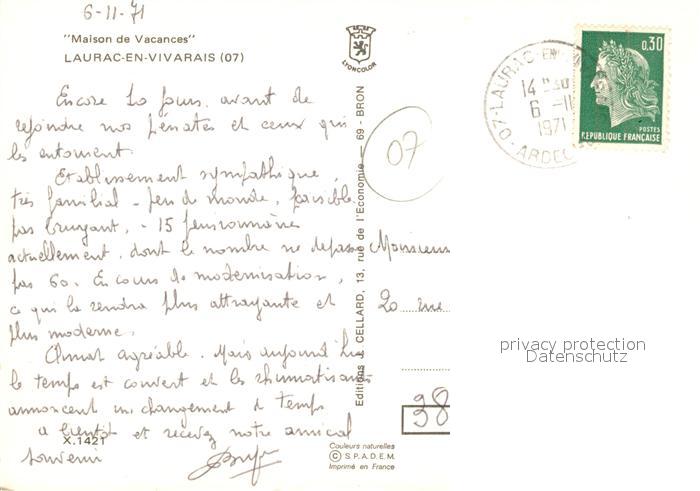 6-11-71
"Maison de Vacances"
LAURAC-EN-VIVARAIS (07)
LYONCOLOR
Encore 10 jours avant de
rejoindre nos pénates et ceux qui
les entourent.
Etablissement sympathique,
très familial - peu de monde, paisible,
pas bruyant, - 15 pensionnaires
actuellement, dont le nombre ne dépasse
pas 60. En cours de modernisation,
ce qui le rendra plus attrayante et
plus moderne.
Climat agréable. Mais aujourd'hui
le temps est couvert et les rhumatisants
annoncent un changement de temps
a bientôt et recevez notre amical
souvenir
X.1421
Editions J. CELLARD, 13, rue de l'Economie - 69 - BRON
Couleurs naturelles
© S.P.A.D.E.M.
Imprimé en France
07
0,30
POSTES
REPUBLIQUE FRANÇAISE
07-LAURAC-EN-
14 H30
6 -11
1971
ARDECHE
Monsieur
20 rue
38
privacy protection
Datenschutz